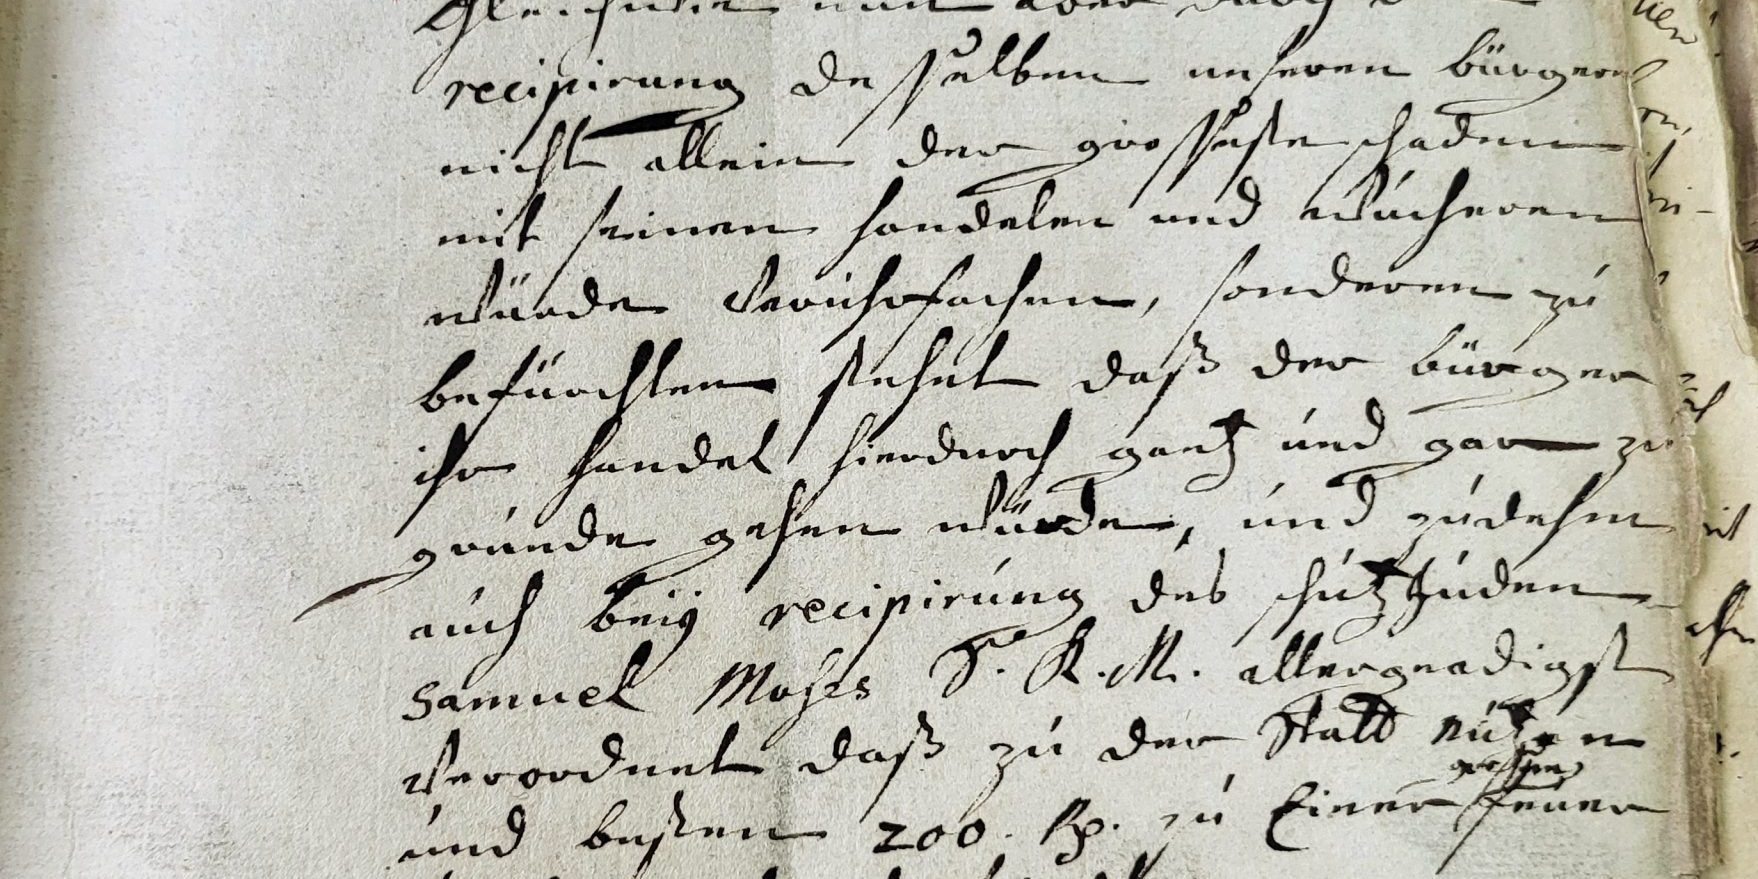 recipirung desselben unseren bürgern
nicht allein der grosseste schaden
mit seinen handelen und wucheren
würde veruhrsachen, sonderen zú
befürchten stehet daß der bürger
ihr handel hierdurch gantz und gar zú
grúnde gehen würde, únd zúdehm
aúch beÿ recipirúng des schútz Júden
Samuel Moses S. K. M. allergnadigst
verordnet daß zú der Stadt nútzen
grossen
und besten 200. Rp. zú Einer feuer